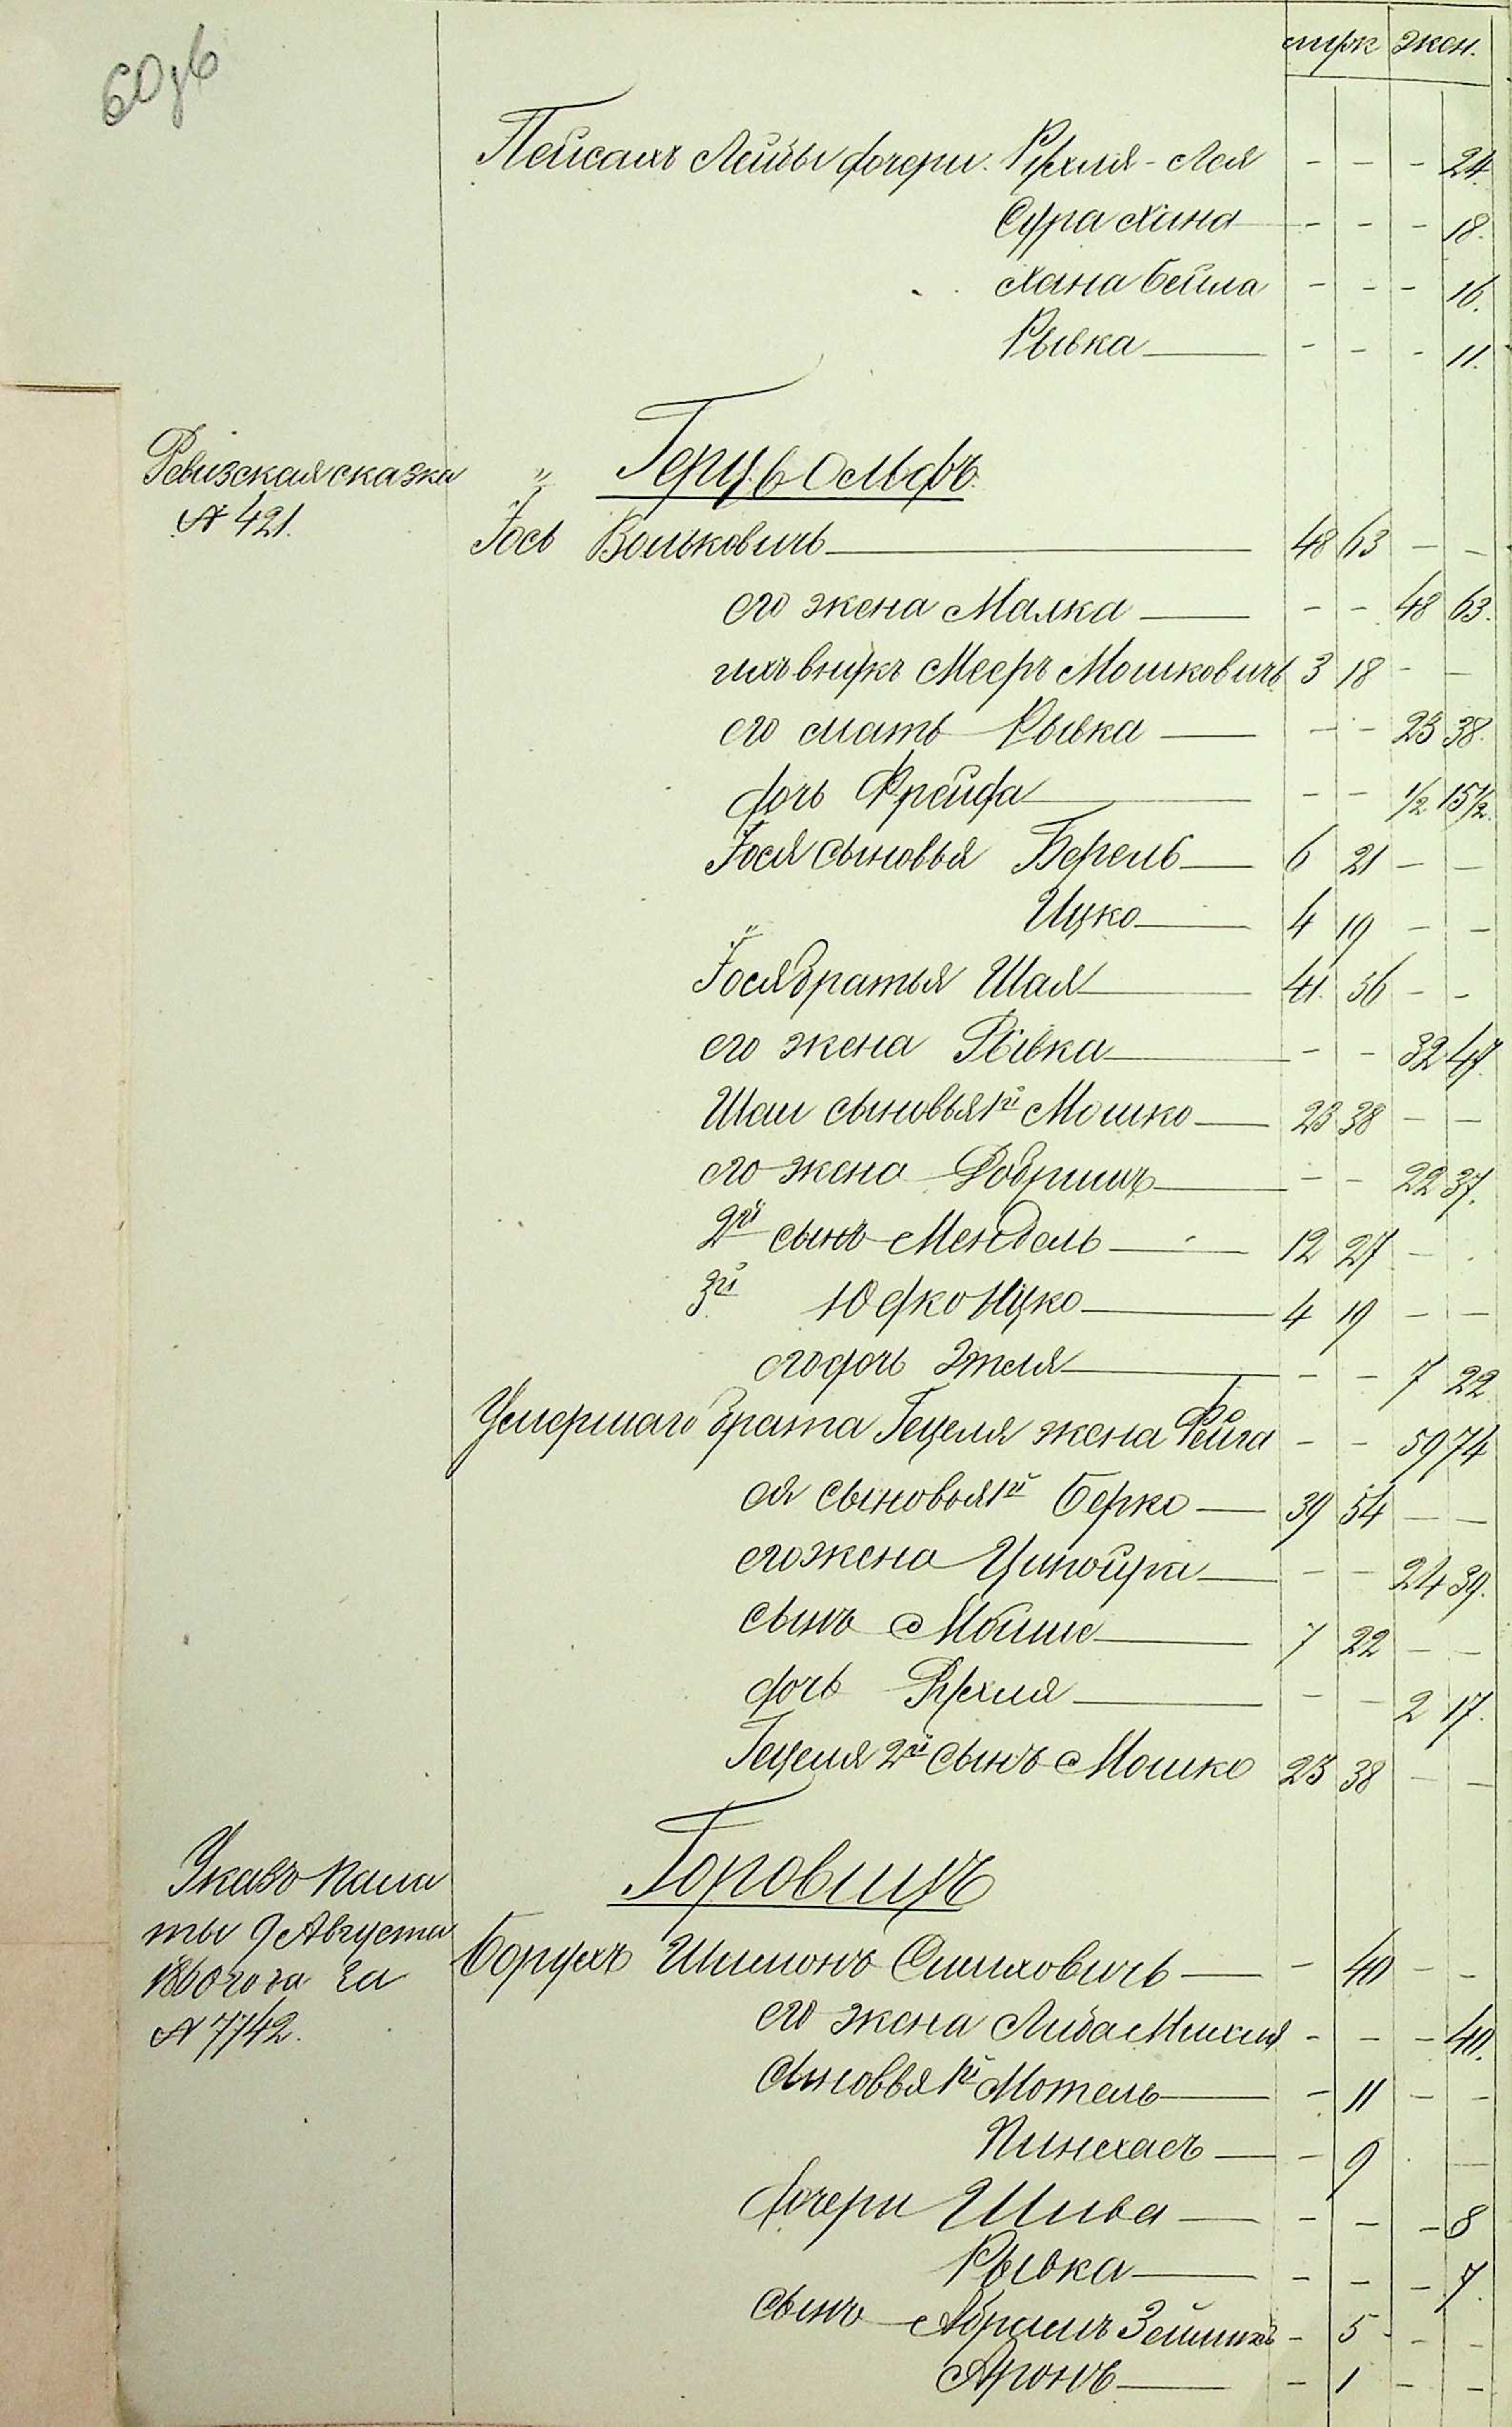 60 об
мужск женск.
Пейсахъ Лейбы дочери. Рухля - Лея - - - 24.
Сура Хина - - - 18.
Хана Бейла - - - 16.
Рывка - - - 11.
Ревизская сказка
№ 421.
Герцъ Ольфъ.
Іось Вольковичъ 48 63 - -
его жена Малка - - 48 63.
ихъ внукъ Мееръ Мошковичъ 3 18 - -
его мать Рывка - - 23 38.
дочь Фрейда - - 1/2 15 1/2.
Іося сыновья Берель 6 21 - -
Ицко 4 19 - -
Іося братья Шая 41. 56 - -
его жена Рывка - - 32 47.
Шаи сыновья 1й Мошко 23 38 - -
его жена Добришъ - - 22 37.
2й сынъ Мендель 12 27 -
3й Юдко Ицко 4 19 - -
его дочь Этля - - 7 22
Умершаго брата Гецеля жена Фейга - - 59 74
ея сыновья 1й Берко 39 54 - -
его жена Ципойра - - 24 39.
сынъ Мойше 7 22 - -
дочь Рухля - - 2 17.
Гецеля 2й сынъ Мошко 23 38 - -
Горовицъ
Указъ пала
ты 9 Августа
1860 года за
№ 7742.
Борухъ Шимонъ Симховичъ - 40 - -
его жена Либа - - - 40.
сыновья 1й Мотель - 11 - -
Пинехасъ - 9 -
дочери Шива - - - 8
Рывка - - - 7.
сынъ Абрамъ - 5 - -
Аронъ - 1 - -